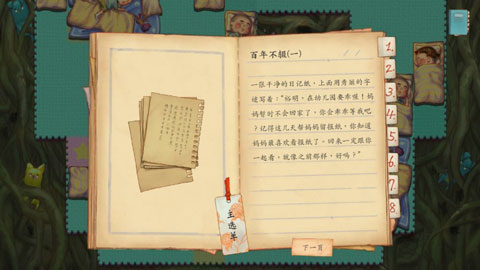 百年不摄(一)
一张干净的日记纸，上面用秀丽的字
迹写着："裕明，在幼儿园要乖哦！妈
妈暂时不会回家了，你会乖乖等我吧
？记得这几天帮妈妈留报纸，你知道
妈妈最喜欢看报纸了。回来一定跟你
一起看，就像之前那样，好吗？"
1.
2.
3.
4.
5.
6.
7.
8.
主选单
下一页